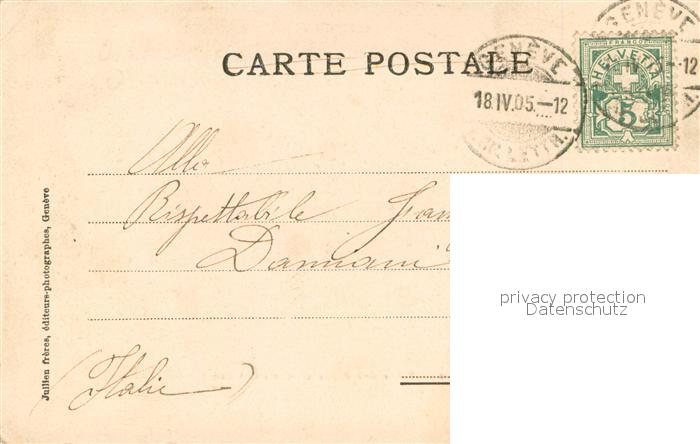 CARTE POSTALE
GENÈVE
18.IV.05.—12
GENÈVE
—12
FRANCO
HELVETIA
5
Alla
Rispettabile
Damiani
(Italie)
Jullien frères, éditeurs-photographes, Genève
privacy protection
Datenschutz